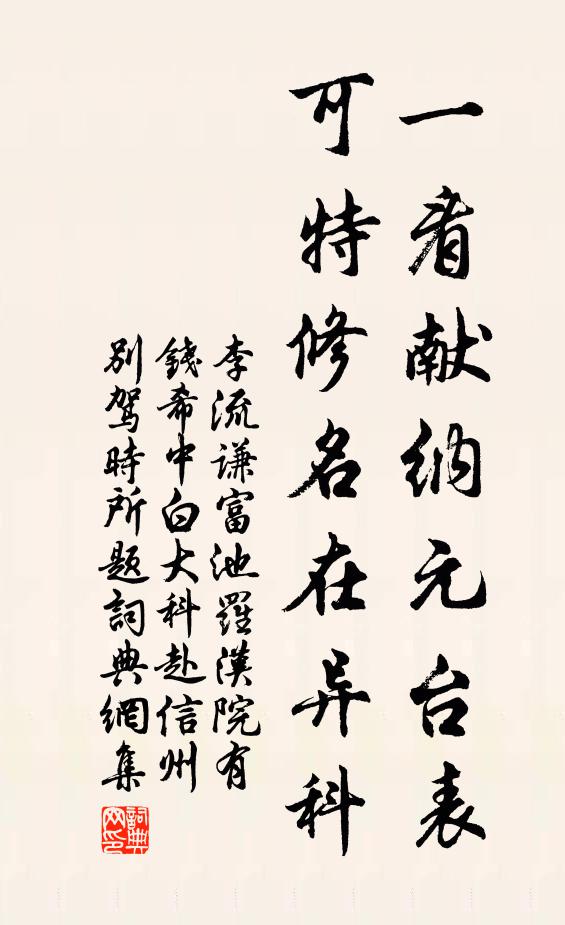 一看献纳元台表
可特修名在异科
李流谦富池羅漢院有
錢希中白大科赴信州
别駕時所题詞典網集
詞典網印